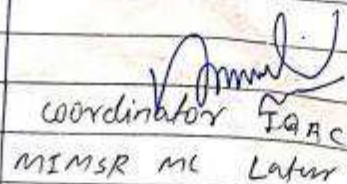 coordinator IQAC
MIMSR MC Latur